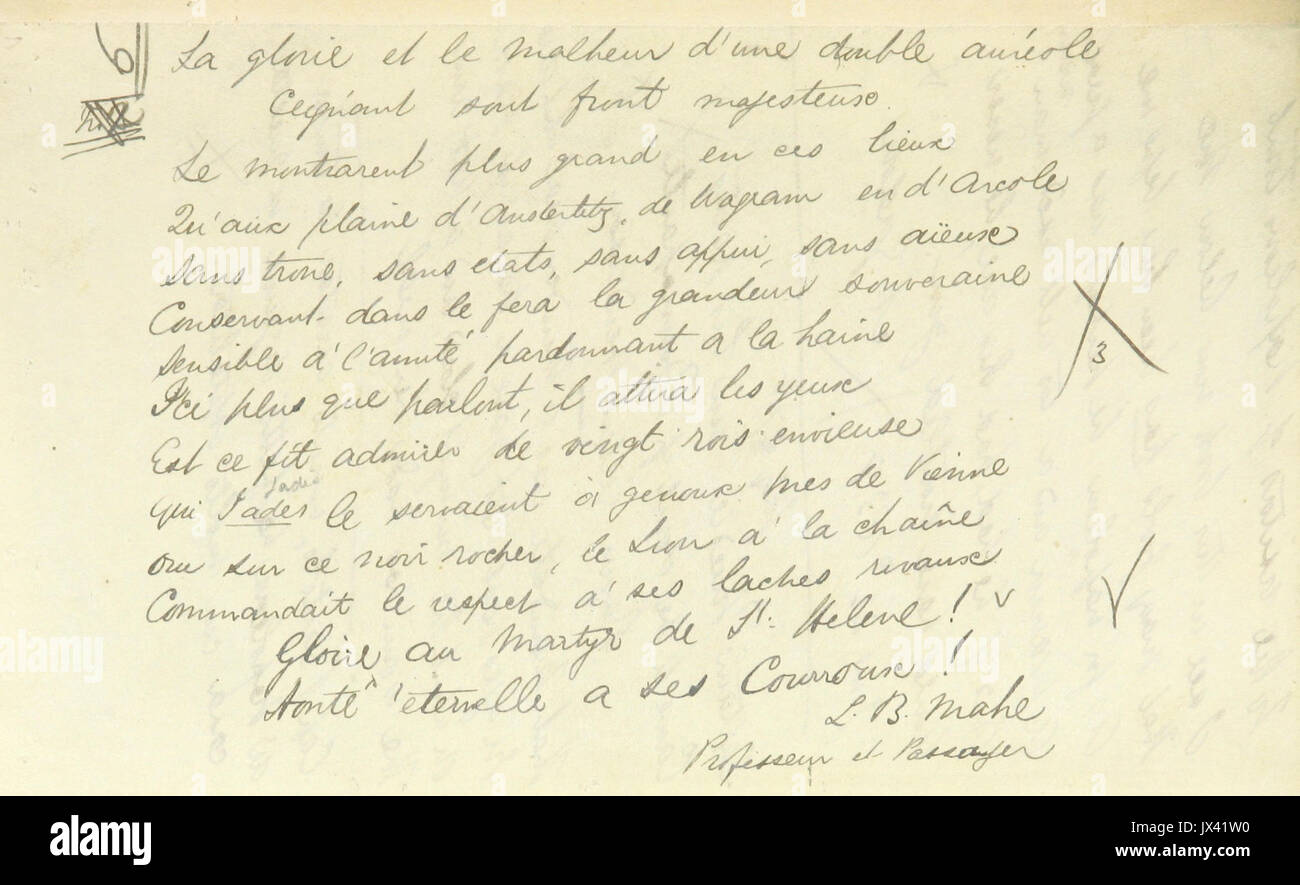 6
La glorie et le malheur d'une double auréole
Ceignant sont front majesteuse.
Le montrarent plus grand en ces lieux
Qu'aux plaine d'Austerlitz, de Wagram en d'Arcole
Sans trone, sans etats, sans appui, sans aïeux
Conservant dans le fera la grandeur souveraine
Sensible á l'amité pardonnant a la haine
Ici plus que parlout, il attira les yeux
Est ce fit admirer de vingt rois envieuse
Jades
Qui Jades le servaient á genoux pres de Vienne
Ou sur ce noir rocher, le Lion á la chaîne
Commandait le respect á ses laches rivaux
3
Gloire au Martyr de St. Helene! v
Honte éternelle a ses Courroux!
L. B. Mahe
Professeur et Passager
alamy
Image ID: JX41W0
www.alamy.com